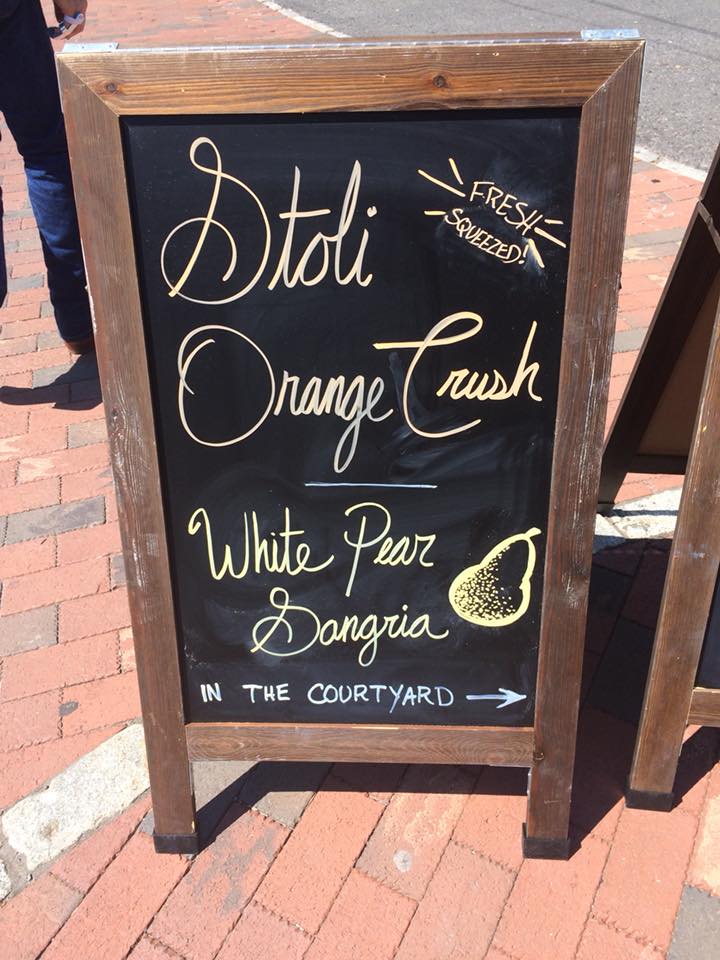 Stoli
FRESH
SQUEEZED!
Orange Crush
White Pear
Sangria
IN THE COURTYARD →